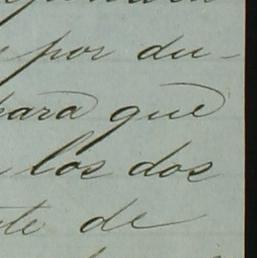 por du-
para que
los dos
te de